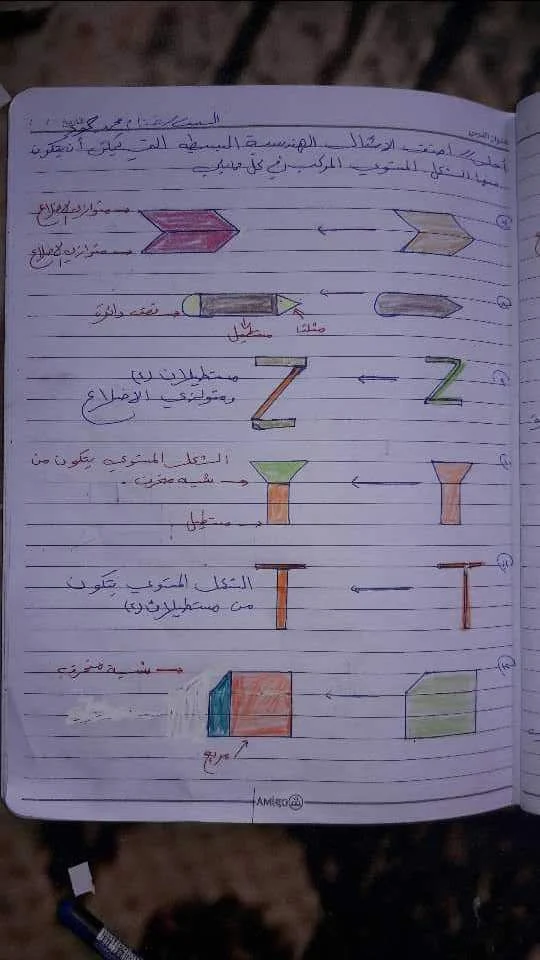 الست / محمد
عنوان الدرس
أحاول / اصنف الاشكال الهندسية البسيطة التي يمكن أن يتكون
منها الشكل المستوي المركب في كل مما يلي
متوازي الاضلاع
متوازي الاضلاع
نصف دائرة
مستطيل
مثلث
مستطيلان (٢)
ومتوازي الاضلاع
الشكل المستوي يتكون من
شبه منحرف
مستطيل
الشكل المستوي يتكون
من مستطيلان (٢)
شبه منحرف
مربع
AMIGO